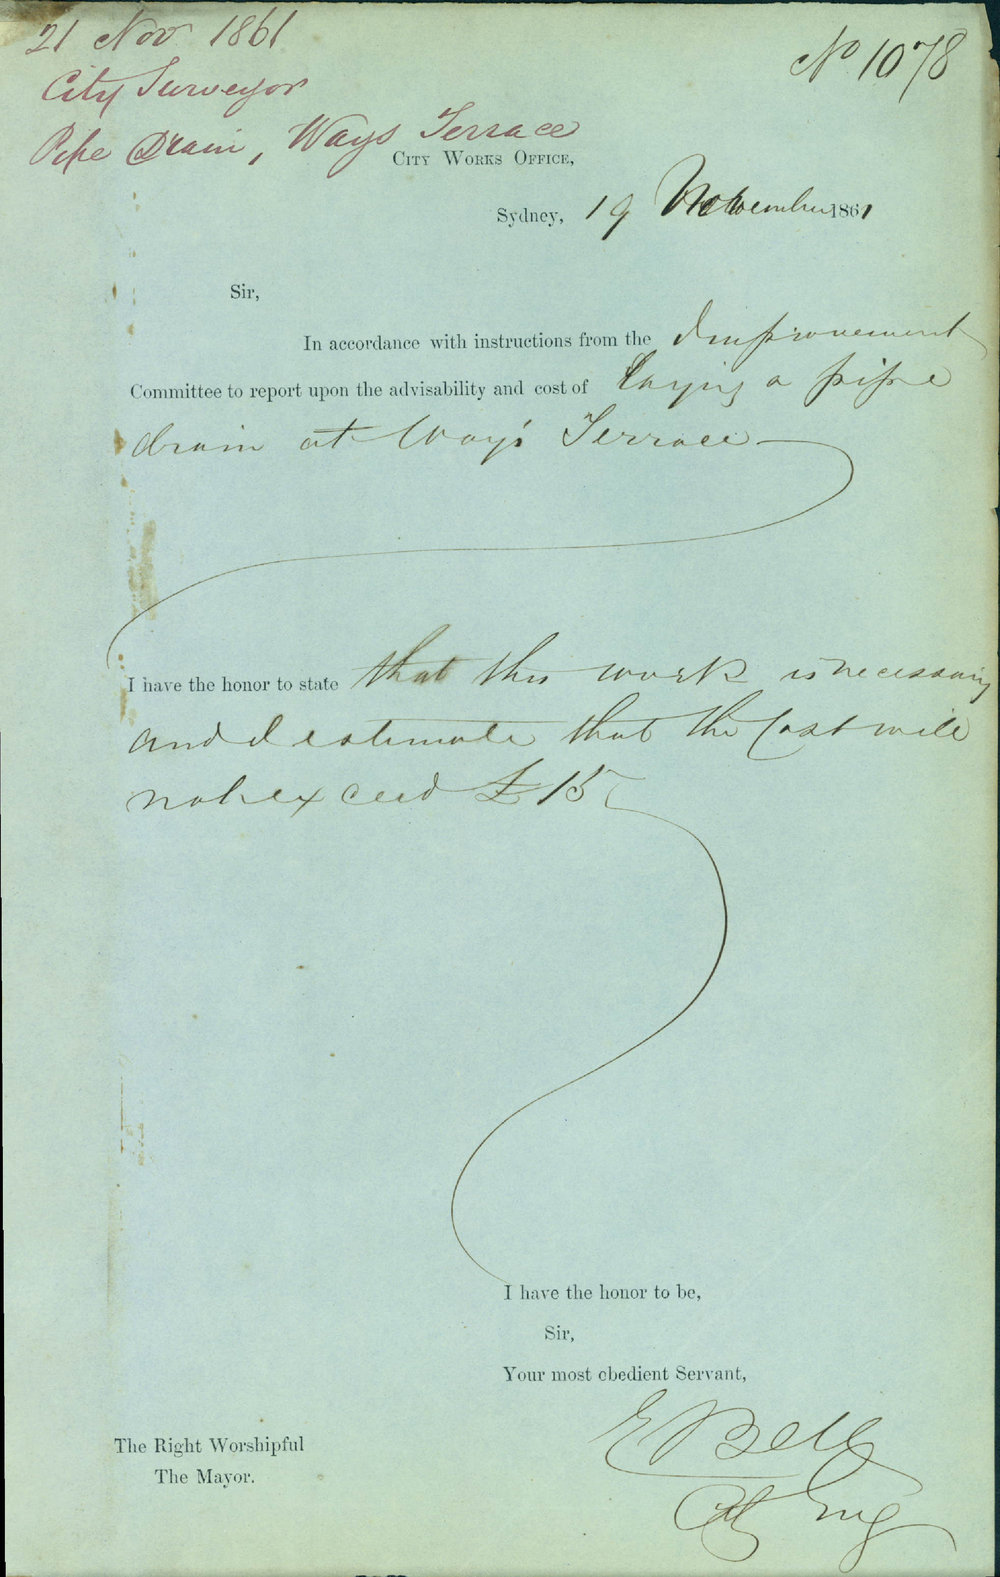 21 Nov 1861
No 1078
City Surveyor
Pipe Drain, Ways Terrace
City Works Office,
Sydney, 19 November 1861
Sir,
In accordance with instructions from the Improvement
Committee to report upon the advisability and cost of laying a pipe
drain at Way's Terrace
I have the honor to state that this work is necessary
and I estimate that the Cost will
not exceed £15
I have the honor to be,
Sir,
Your most obedient Servant,
E Bell
City Eng
The Right Worshipful
The Mayor.